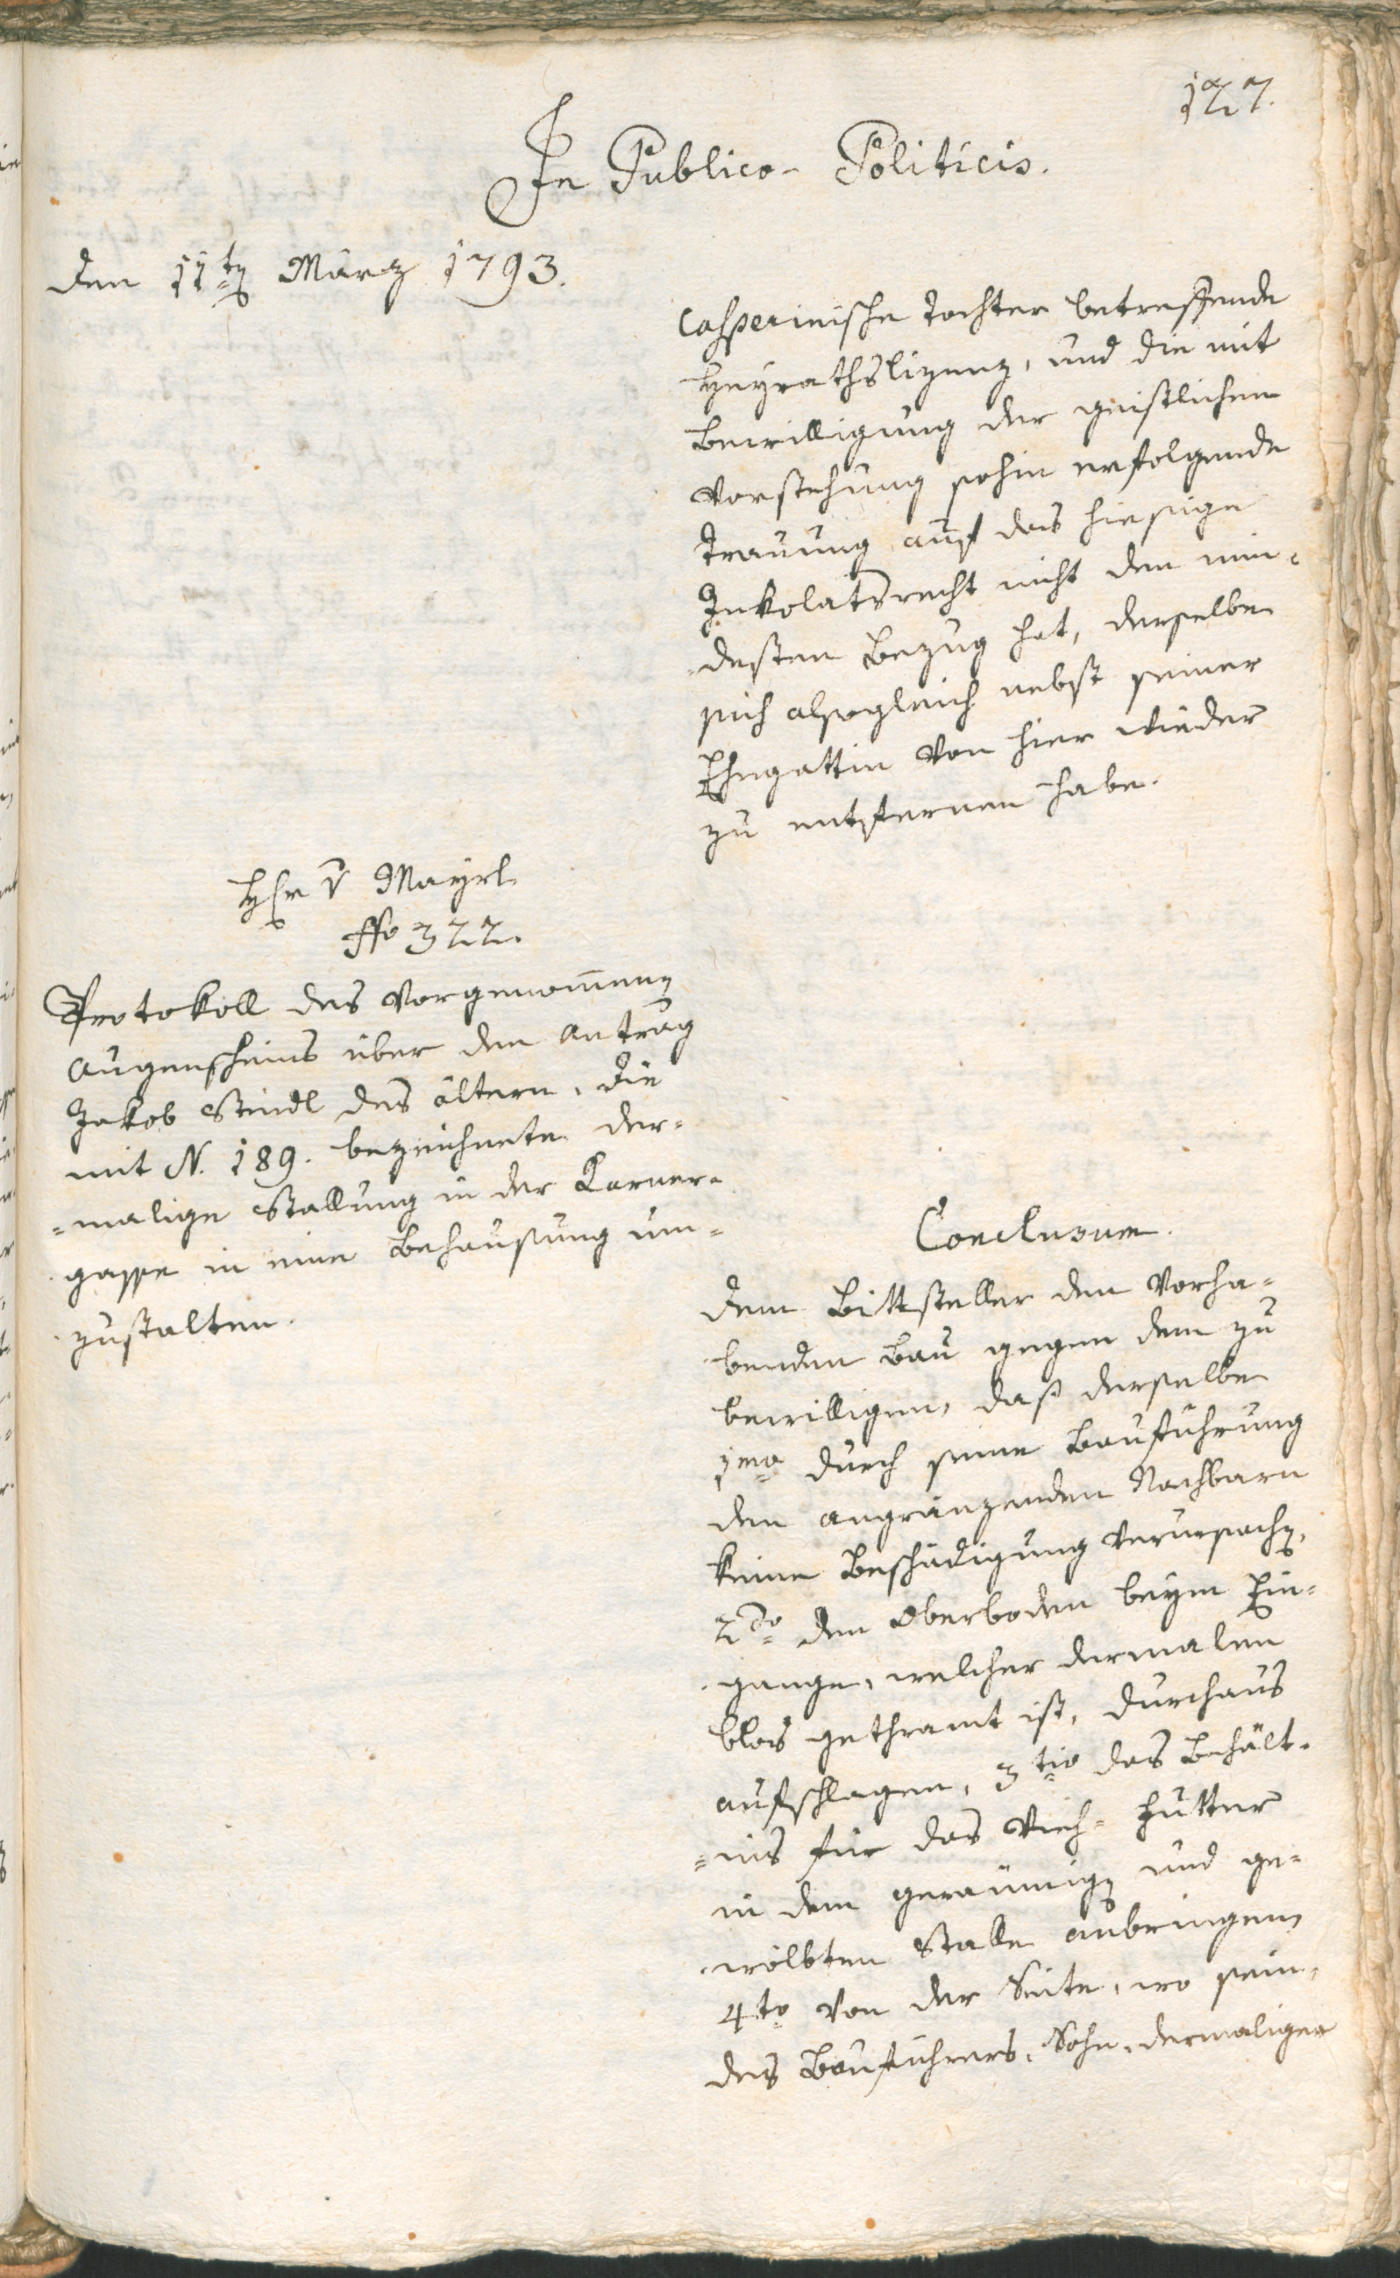 127.
In Publico-Politicis.
den 11tn März 1793.
Casperinische Tochter betreffende
Heyrathslizenz, und die mit
Bewilligung der geistlichen
Vorstehung sohin erfolgende
Trauung auf das hiesige
Inkolatsrecht nicht den min-
desten Bezug hat, derselbe
sich alsogleich nebst seiner
Ehegattin von hier wieder
zu entfernen habe.
Hr v Mayrl.
ffo 322.
Protokoll des vorgenommenen
Augenscheins über den Antrag
Jakob Steidl des ältern, die
mit N. 189. bezeichnete der-
=malige Stallung in der Karner-
gasse in eine Behausung um-
zustalten.
Conclusum.
dem Bittsteller den vorha-
benden Bau gegen dem zu
bewilligen, daß derselbe
1mo durch seine Bauführung
den angränzenden Nachbarn
keine Beschädigung verursachen,
2do den Oberboden beym Ein-
gange, welcher dermalen
blos gethramt ist, durchaus
aufschlagen, 3tio das Behält-
=nis für das Vieh-Futter
in dem geräumigen und ge-
wölbten Stalle anbringen
4to von der Seite, wo sein,
des Bauführers, Sohn, dermaliger